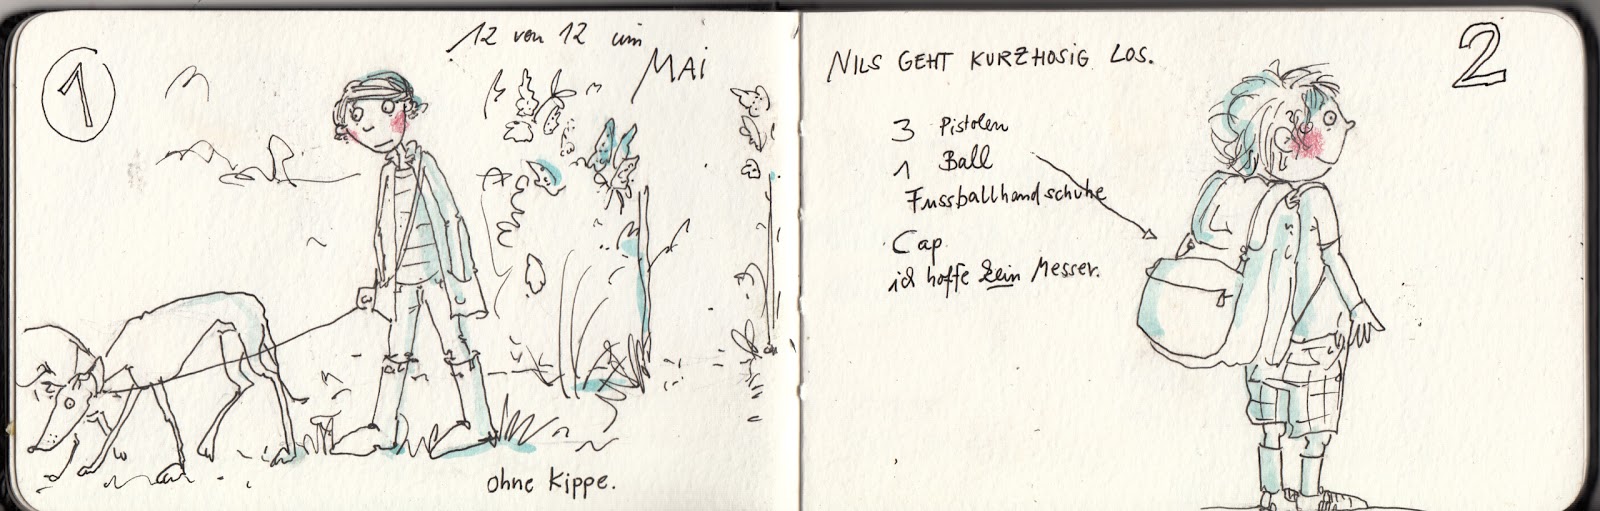 1
12 von 12 im
MAI
ohne Kippe.
NILS GEHT KURZHOSIG LOS.
2
3 Pistolen
1 Ball
Fussballhandschuhe
Cap
ich hoffe kein Messer.